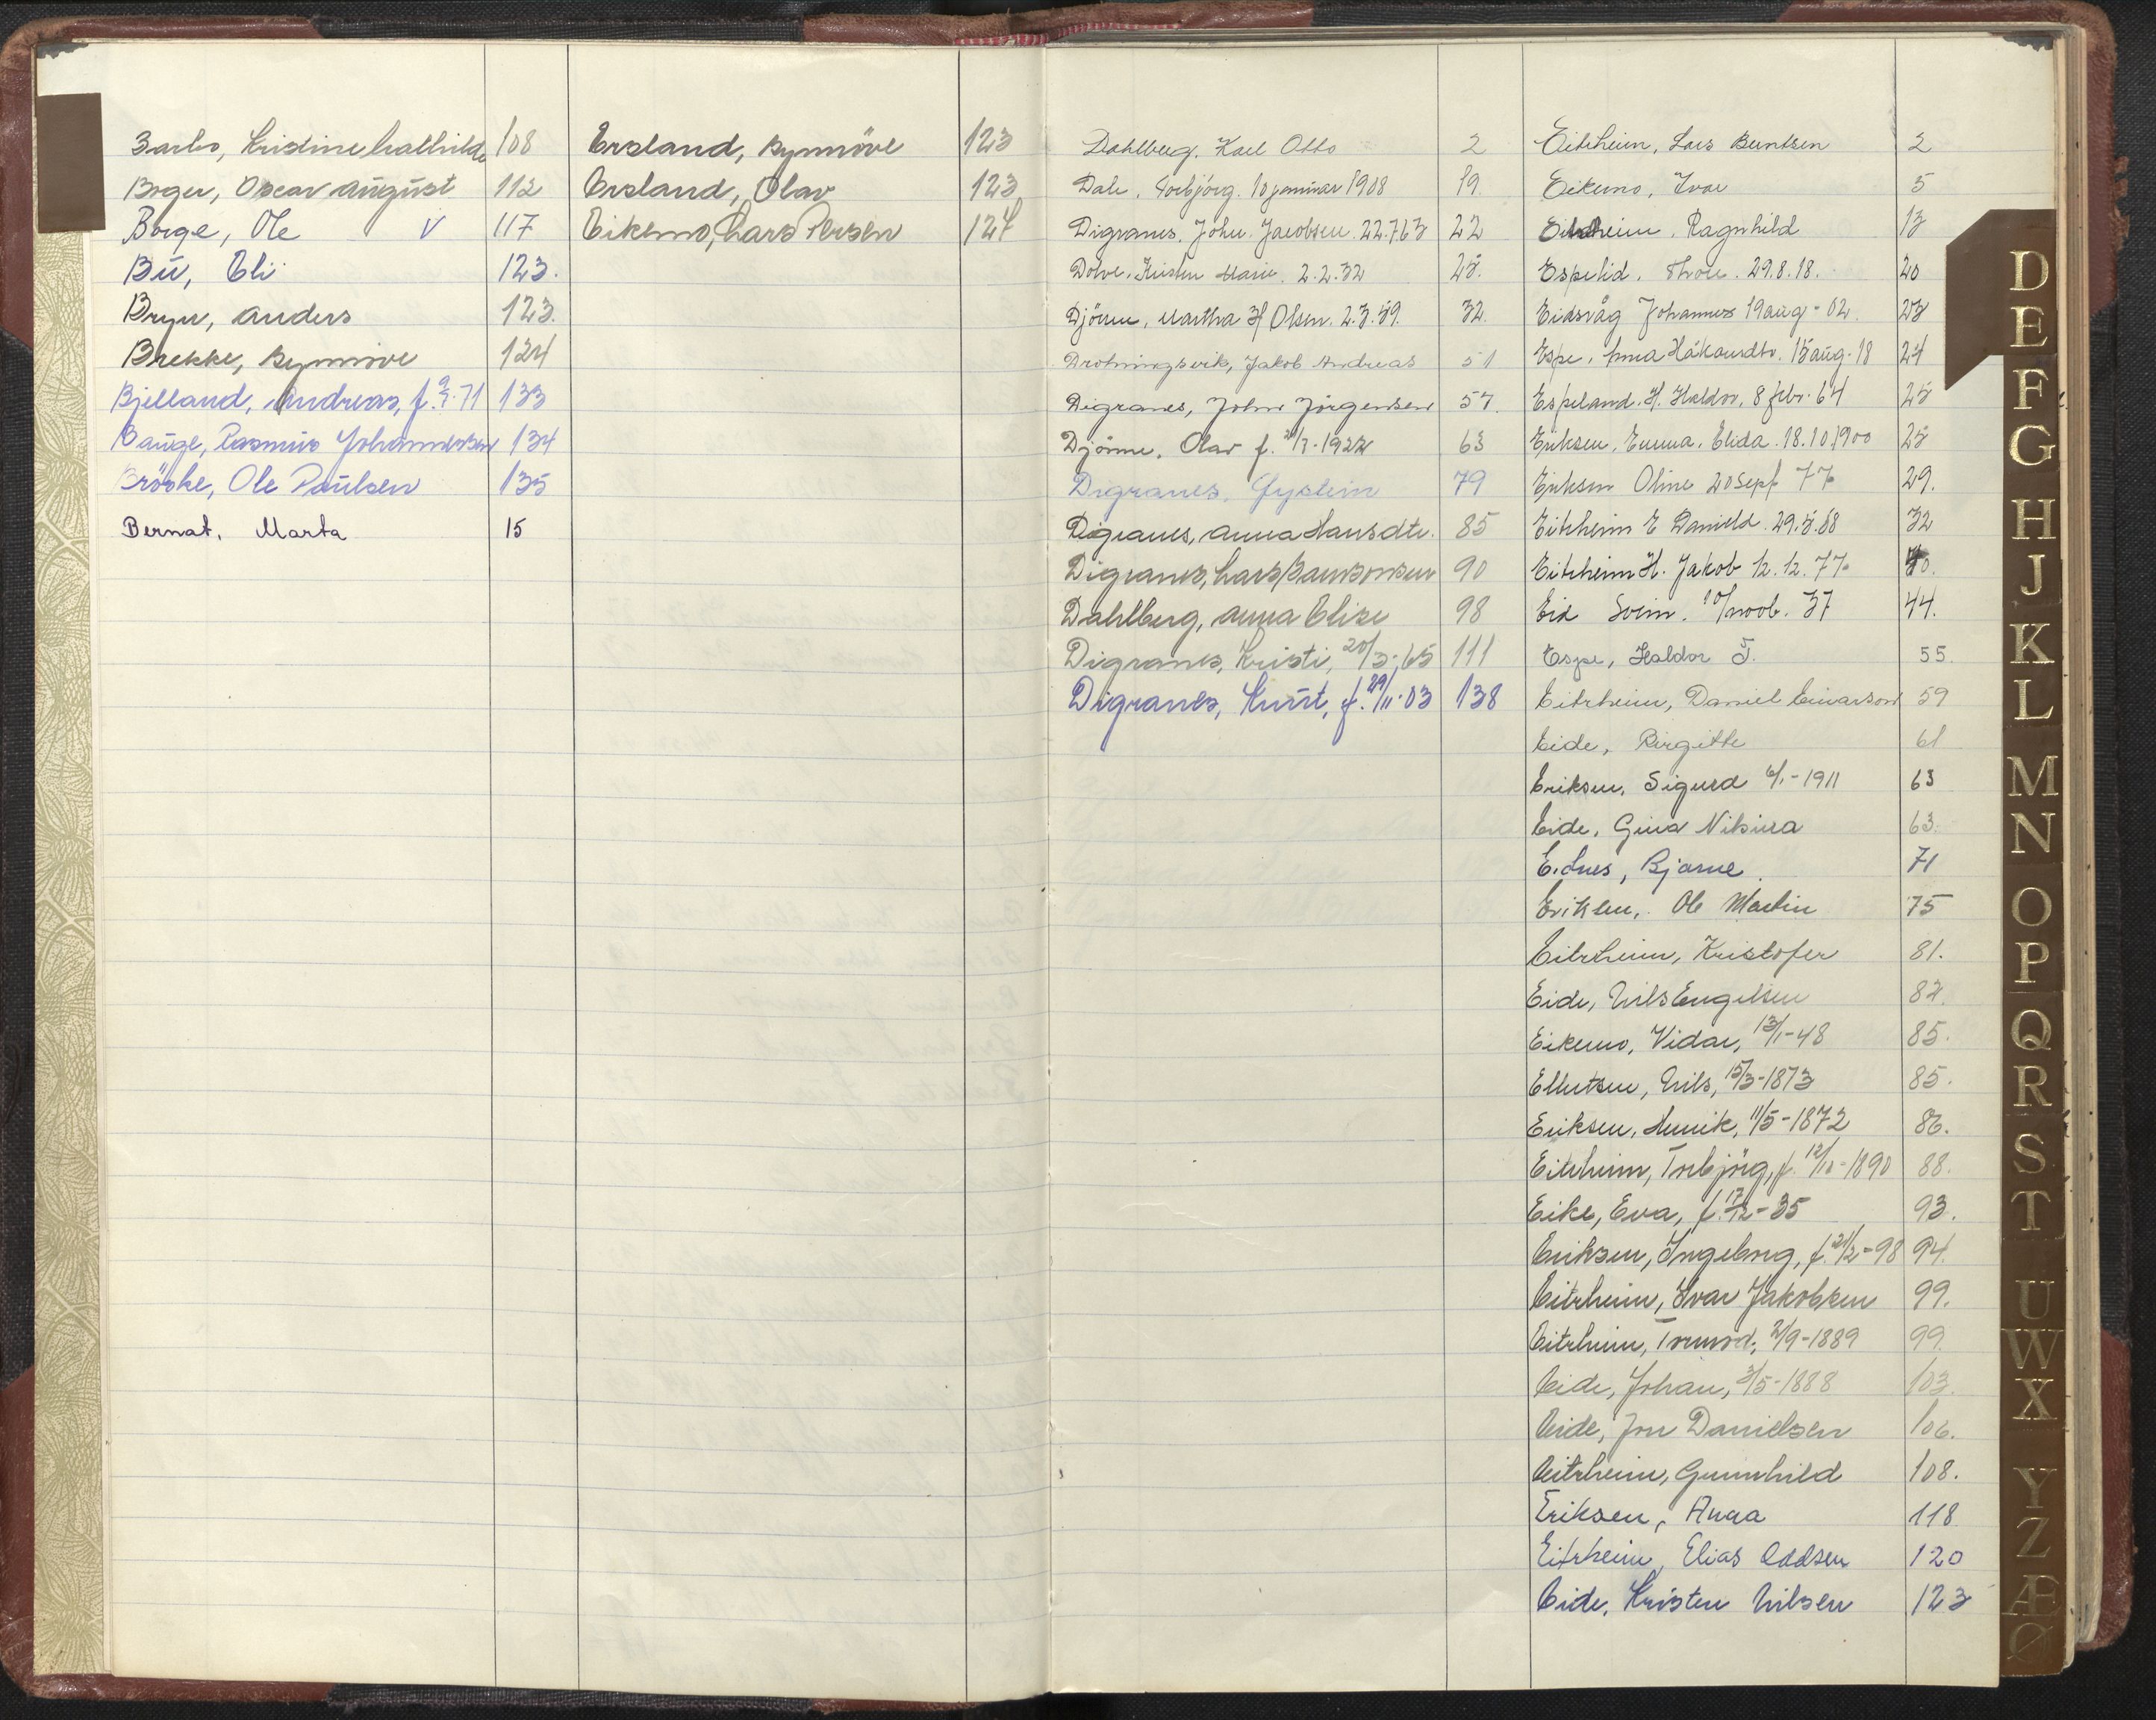 Barbo, Kristine Mathilde 108
Borger, Oscar August 112
Børge, Ole V 117
Bu, Eli 123.
Bryn, Anders 123.
Brekke, Synnöve 124
Bjelland, Andreas, f. 9/7-71 133
Bauge, Rasmus Johannessen 134
Ole Paulsen 135
Bernat, Marta 15
Ersland, Synnöve 123
Ersland, Olav 123
Eikemo, Lars Persen 124
Dahlberg, Karl Otto 2
Dale, Torbjörg. 10 januar 1908 19.
Digranes, John Jacobsen. 22.7.63 22
Marie. 2.2.32 25.
Djönne, Martha H Olsen. 2.3.59. 32.
Drotningsvik, Jakob Andreas 51
Digranes, John Jörgensen 57.
Djönne, Olav f. 63
Digranes, Øystein 79
Digranes, Anna Hansdtr. 85
Digranes, Lars Samsonsen 90
Dahlberg, Anna Elise 98
Digranes, Kristi, 20/3-65 111
Digranes, Knut, f. 29/11-03 138
Eitrheim, Lars Berntsen 2
Eikemo, Ivar 5
Eitrheim, Ragnhild 13
Espelid, 29.8.18. 20
Eidsvåg Johannes 19 aug - 02. 23
Espe, Anna Håkonsdtr. 15 aug. 18 24
Espeland, H. Haldor, 8 febr. 64 25
Eriksen, Emma, Elida. 18.10.1900 25
Eriksen Oline 20 Sept 77 29.
Eitrheim E Daniel 29.5.68 32
Eitrheim H. Jakob 12.12.77
Eid Svein. 10/novb. 37 44.
Espe, Haldor T. 55.
Eitrheim, Daniel Einarson 59
Eide, Birgitte 61
Eriksen, Sigurd 6/1-1911 63
Eide, Gina Nikura 63.
Eidnes, Bjarne. 71
Eriksen, Ole Martin 75
Eitrheim, Kristofer 81.
Eide, Nils Engelsen 82.
Eikemo, Vidar, 13/1-48 85.
Ellertsen, Nils, 15/3-1873 85.
Eriksen, Henrik, 11/5-1872 86.
Eitrheim, Torbjörg, f. 12/10-1890 88.
Eike, Eva, f. 17/12-35 93.
Eriksen, Ingeborg, f. 21/2-98 94.
Eitrheim, Ivar Jakobsen 99.
Eitrheim, Tormod, 2/9-1889 99.
Eide, Johan, 3/5-1888 103.
Eide, Jon Danielsen 106.
Eitrheim, Gunnhild 108.
Eriksen, Anna 118
Eitrheim, Elias Oddsen 120
Eide, Kristen Nilsen 123
D
E
F
G
H
J
K
L
M
N
O
P
Q
R
S
T
U
W
X
Y
Z
Æ
Ø